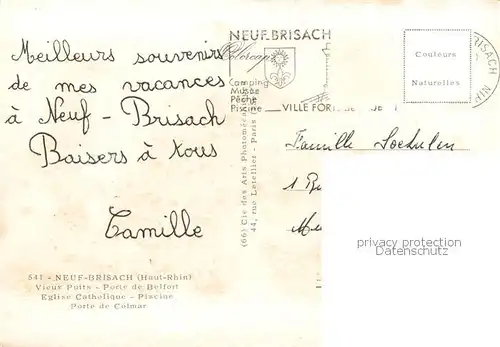 Meilleurs souvenirs
de mes vacances
à Neuf - Brisach
Baisers à tous
Camille
541 - NEUF-BRISACH (Haut-Rhin)
Vieux Puits - Porte de Belfort
Eglise Catholique - Piscine
Porte de Colmar
(66) Cie des Arts Photomécaniques
44, rue Letellier - Paris
NEUF.BRISACH
Camping
Musée
Pêche
Piscine
VILLE FOR
Couleurs
Naturelles
BRISACH
Famille
1 R
privacy protection
Datenschutz